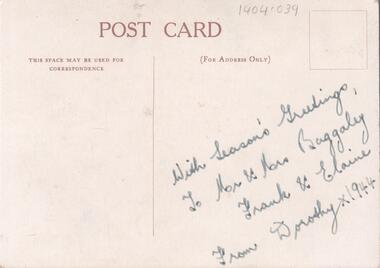 1404.039
POST CARD
THIS SPACE MAY BE USED FOR
CORRESPONDENCE
(FOR ADDRESS ONLY)
With Season's Greetings,
To Mr & Mrs Baggaley
Frank & Elaine
From Dorothy X1944